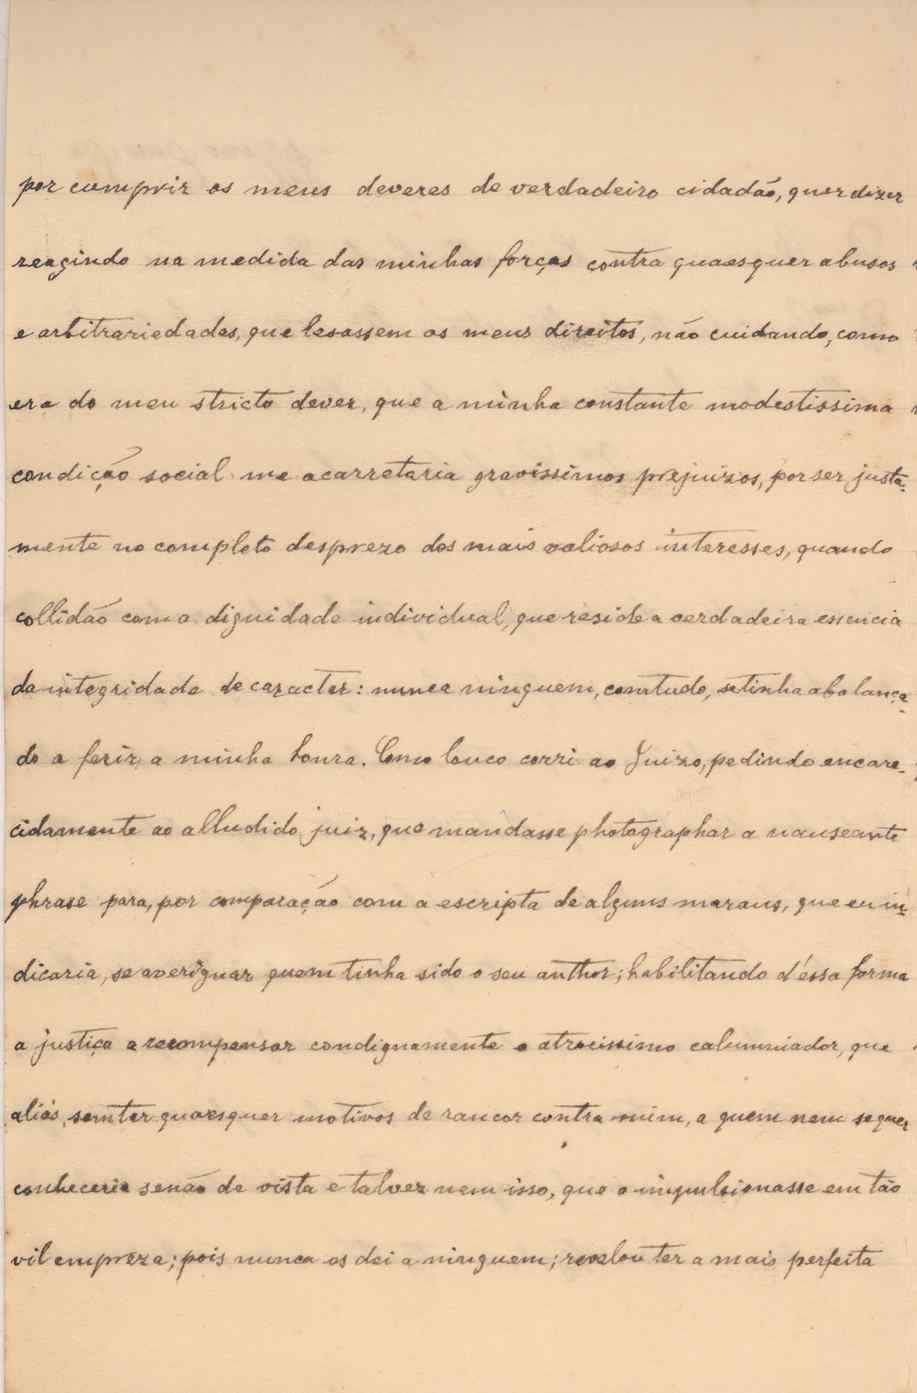 por cumprir os meus deveres de verdadeiro cidadão, quer dizer
reagindo na medida das minhas forças contra quaesquer abusos
e arbitrariedades, que lesassem os meus direitos, não cuidando, como
era do meu stricto dever, que a minha constante modestissima
condição social me acarretaria gravissimos prejuizos, por ser justa-
mente no completo desprezo dos mais valiosos interesses, quando
collidão com a dignidade individual, que reside a verdadeira essencia
da integridade de caracter: nunca ninguem, comtudo, se tinha abalança-
do a ferir a minha honra. Como louco corri ao Juizo, pedindo encare-
cidamente ao alludido juiz, que mandasse photographar a nauseante
phrase para, por comparação com a escripta de alguns maraus, que eu in-
dicaria, se averiguar quem tinha sido o seu author; habilitando d'éssa forma
a justiça a recompensar condignamente o atrocissimo calumniador, que
aliás, sem ter quaesquer motivos de rancor contra mim, a quem nem sequer
conheceria senão de vista e talvez nem isso, que o impulsionasse em tão
vil empreza; pois nunca os dei a ninguem; revelou ter a mais perfeita